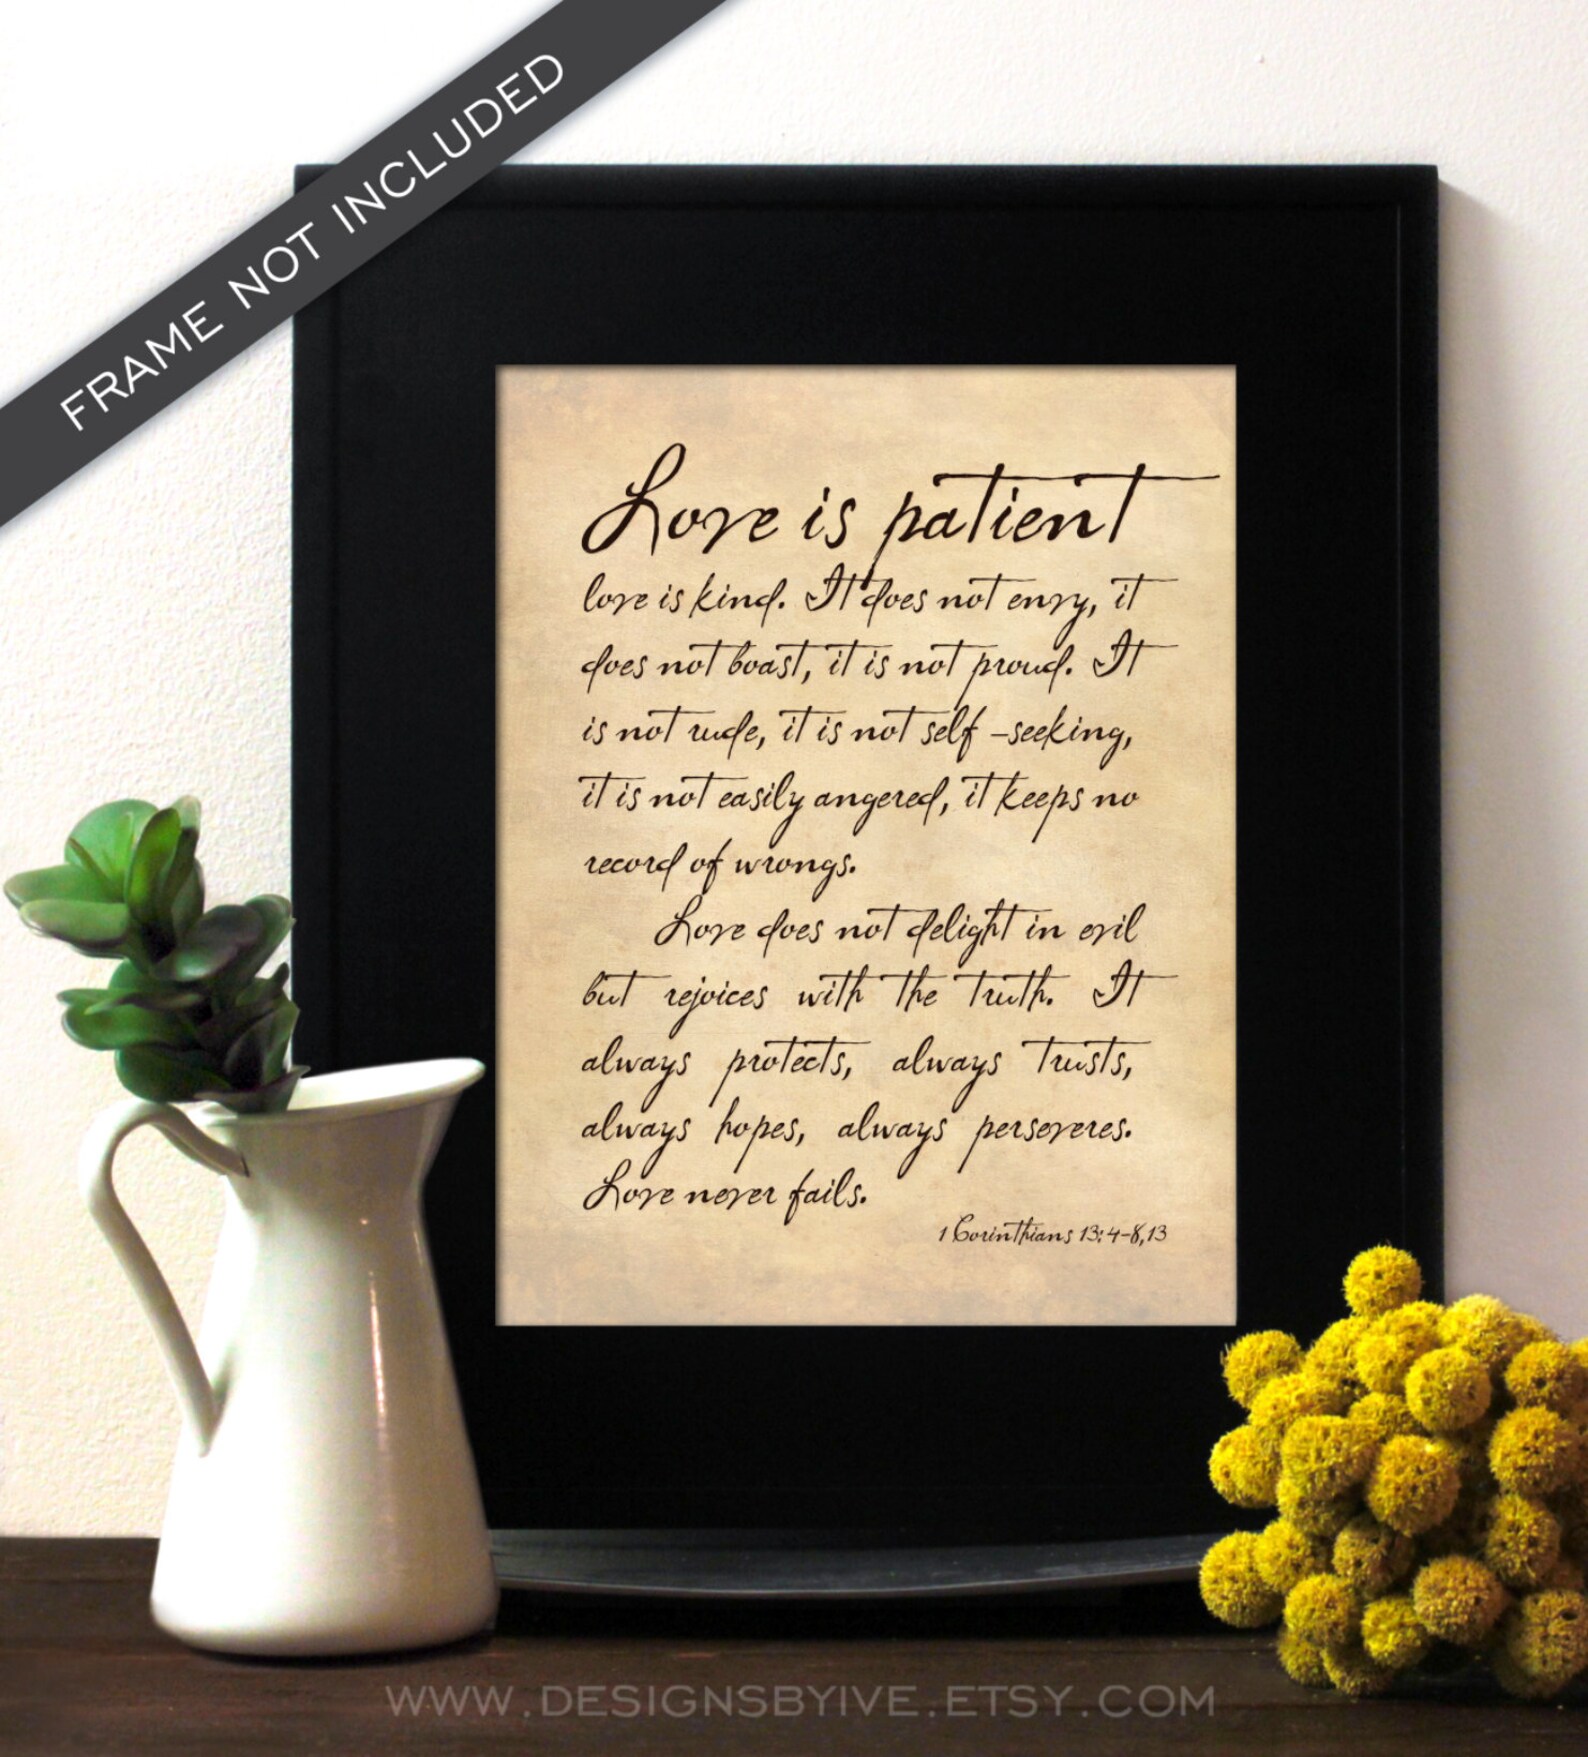 FRAME NOT INCLUDED
Love is patient
love is kind. It does not envy, it
does not boast, it is not proud. It
is not rude, it is not self-seeking,
it is not easily angered, it keeps no
record of wrongs.
Love does not delight in evil
but rejoices with the truth. It
always protects, always trusts,
always hopes, always perseveres.
Love never fails.
1 Corinthians 13:4-8,13
WWW.DESIGNSBYIVE.ETSY.COM